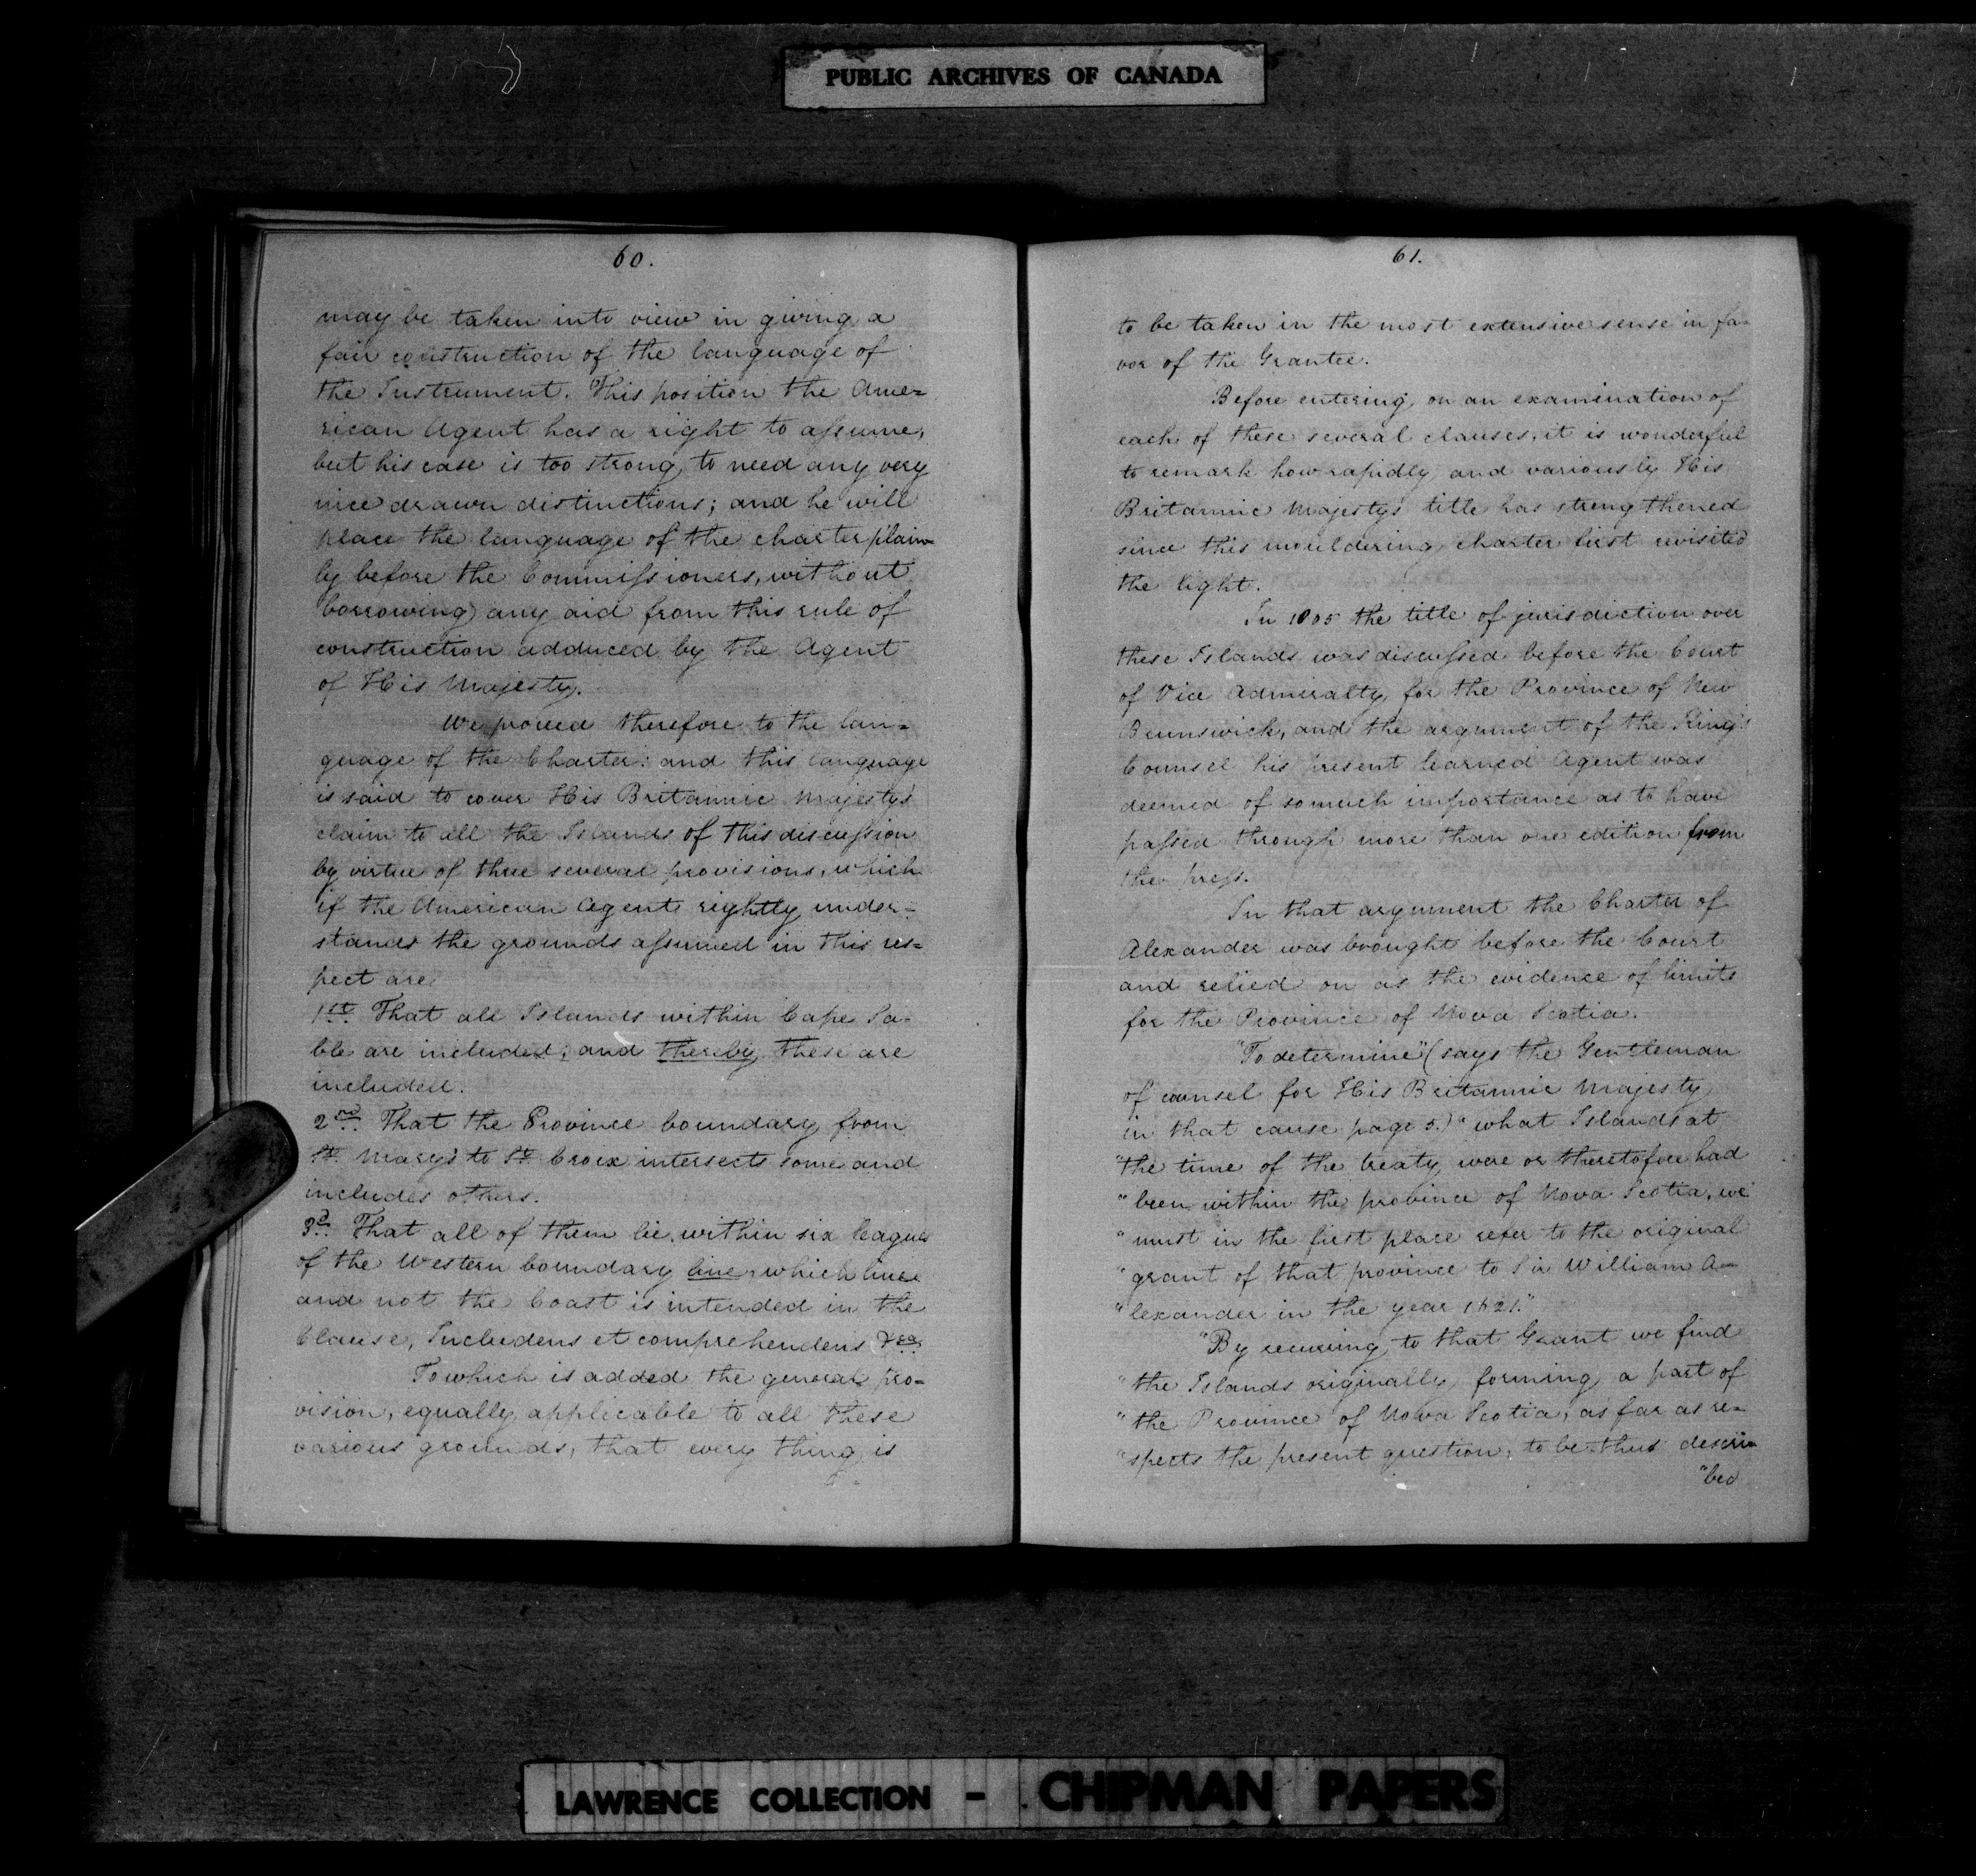 PUBLIC ARCHIVES OF CANADA
60.
may be taken into view in giving a
fair construction of the language of
the Instrument. This position the Ame=
rican Agent has a right to assume,
but his case is too strong, to need any very
nice drawn distinctions; and he will
place the language of the charter plain=
ly before the Commissioners, without
borrowing any aid from this rule of
construction adduced by the Agent
of His Majesty.
We proceed therefore to the lan=
guage of the Charter: and this language
is said to cover His Britannic Majesty's
claim to all the Islands of this discussion
by virtue of three several provisions, which
if the American Agent rightly under=
stands the grounds assumed in this res=
pect are
1st. That all Islands within Cape Sa=
ble are included; and thereby these are
included.
2nd. That the Province boundary from
St. Mary's to St. Croix intersects some and
includes others.
3d. That all of them lie within six leagues
of the Western boundary line, which line
and not the Coast is intended in the
Clause, Includens et comprehendens &ca.
To which is added the general pro=
vision, equally applicable to all these
various grounds, that every thing is
61.
to be taken in the most extensive sense in fa=
vor of the Grantee.
Before entering on an examination of
each of these several clauses, it is wonderful
to remark how rapidly and variously His
Britannic Majesty's title has strengthened
since this mouldering charter first revisited
the light.
In 1805 the title of jurisdiction over
these Islands was discussed before the Court
of Vice Admiralty for the Province of New
Brunswick, and the argument of the King's
Counsel his present learned Agent was
deemed of so much importance as to have
passed through more than one edition from
the press.
In that argument the Charter of
Alexander was brought before the Court
and relied on as the evidence of limits
for the Province of Nova Scotia.
"To determine" (says the Gentleman
of counsel for His Britannic Majesty
in that cause page 5.) "what Islands at
"the time of the treaty, were or theretofore had
"been within the province of Nova Scotia, we
"must in the first place refer to the original
"grant of that province to Sir William A=
"lexander in the year 1621."
"By recurring to that Grant we find
"the Islands originally forming a part of
"the Province of Nova Scotia, as far as re=
"spects the present question, to be thus descri=
"bed
LAWRENCE COLLECTION - CHIPMAN PAPERS